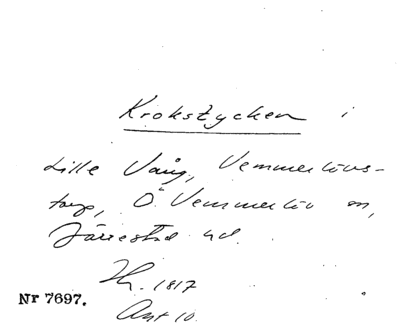 Krokstycken i
Lille Vång, Vemmerlövs-
torp, Ö. Vemmerlöv sn,
Järrestad hd.
Lh. 1817
Akt 10
Nr 7697.